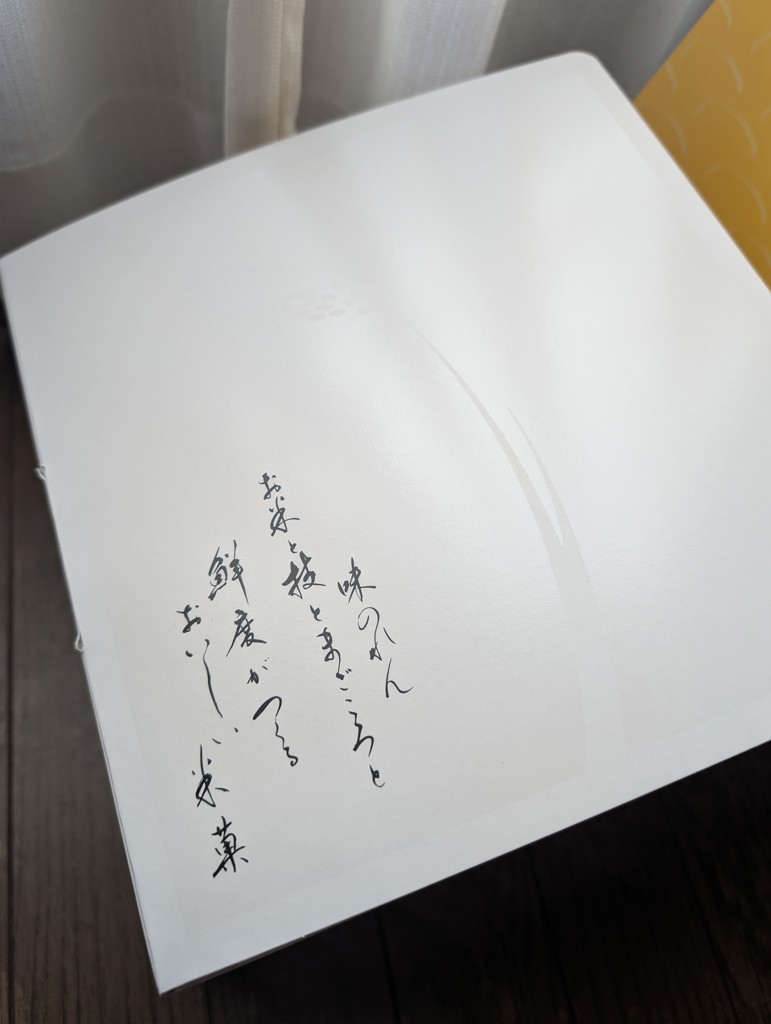 味のれん
お米と技とまごころと
鮮度がつくる
おいしい米菓